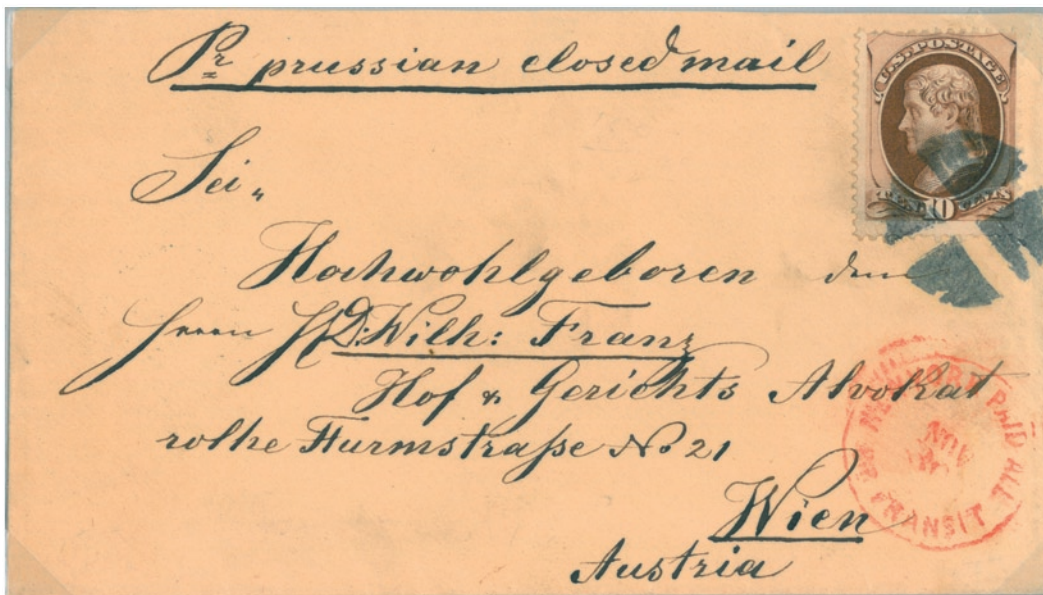 Pr prussian closed mail
U.S. POSTAGE
TEN 10 CENTS
Sei„
Hochwohlgeboren dem
Herrn D: Wilh: Franz
Hof & Gerichts Advokat
rothe Thurmstraße No 21
Wien
Austria
NEW YORK PAID ALL
BR TRANSIT
NOV